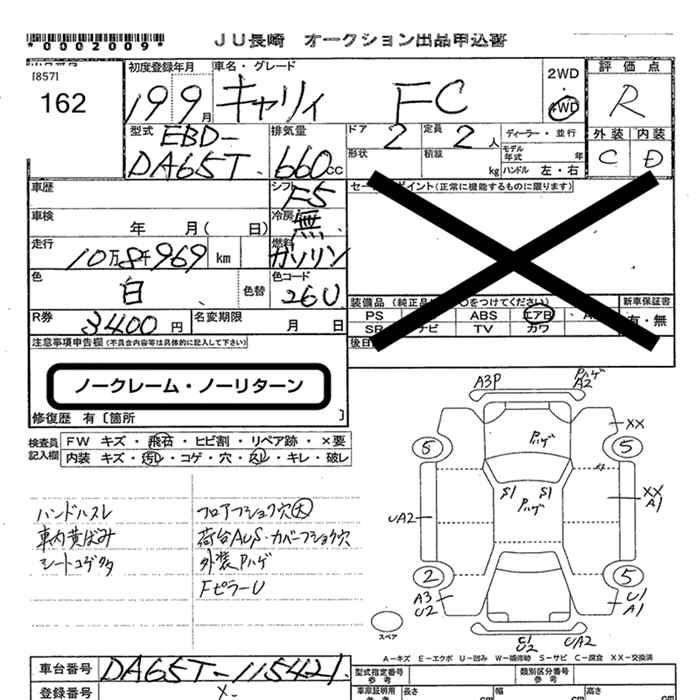 *0002009* JU長崎 オークション出品申込書
[857] 初度登録年月 車名・グレード 2WD 評価点
162 19 9 9月 キャリイ FC 4WD R
型式 排気量 ドア 定員 ディーラー・並行 外装 内装
EBD- 2 2人 モデル年式 年 C D
DA65T 660cc 形状 積載 kg ハンドル 左・右
車歴 シフト F5 (正常に機能するものに限ります)
車検 年 月( 日) 冷房 無
走行 10万8千969 km 燃料 ガソリン
色 白 色替 色コード 26U 装備品 新車保証書
PS ABS エアB 有・無
R券 8400円 名変期限 月 日 TV カワ
注意事項申告欄(不具合内容等は具体的に記入して下さい)
ノークレーム・ノーリターン
修復歴 有〔箇所 〕
検査員記入欄 FW キズ・飛石・ヒビ割・リペア跡・×要
内装 キズ・汚レ・コゲ・穴・スレ・キレ・破レ
A3P Pハゲ A2
XX
5 5
Pハゲ
S1 S1
Pハゲ
XX A1
UA2
2 5
A3 U2 U1 A1
C1 U2 UA2
ハンドルスレ フロアフショク穴大
車内黄ばみ 荷台AUS・カバーフショク穴
シートコゲクタ 外装Pハゲ
FピラーU
スペア
A-キズ E-エクボ U-凹み W-補修跡 S-サビ C-腐食 XX-交換済
車台番号 DA65T-115421 型式指定番号 参考 類別区分番号 参考
登録番号 X- 車庫証明用 参考 長さ cm 幅 cm 高さ cm